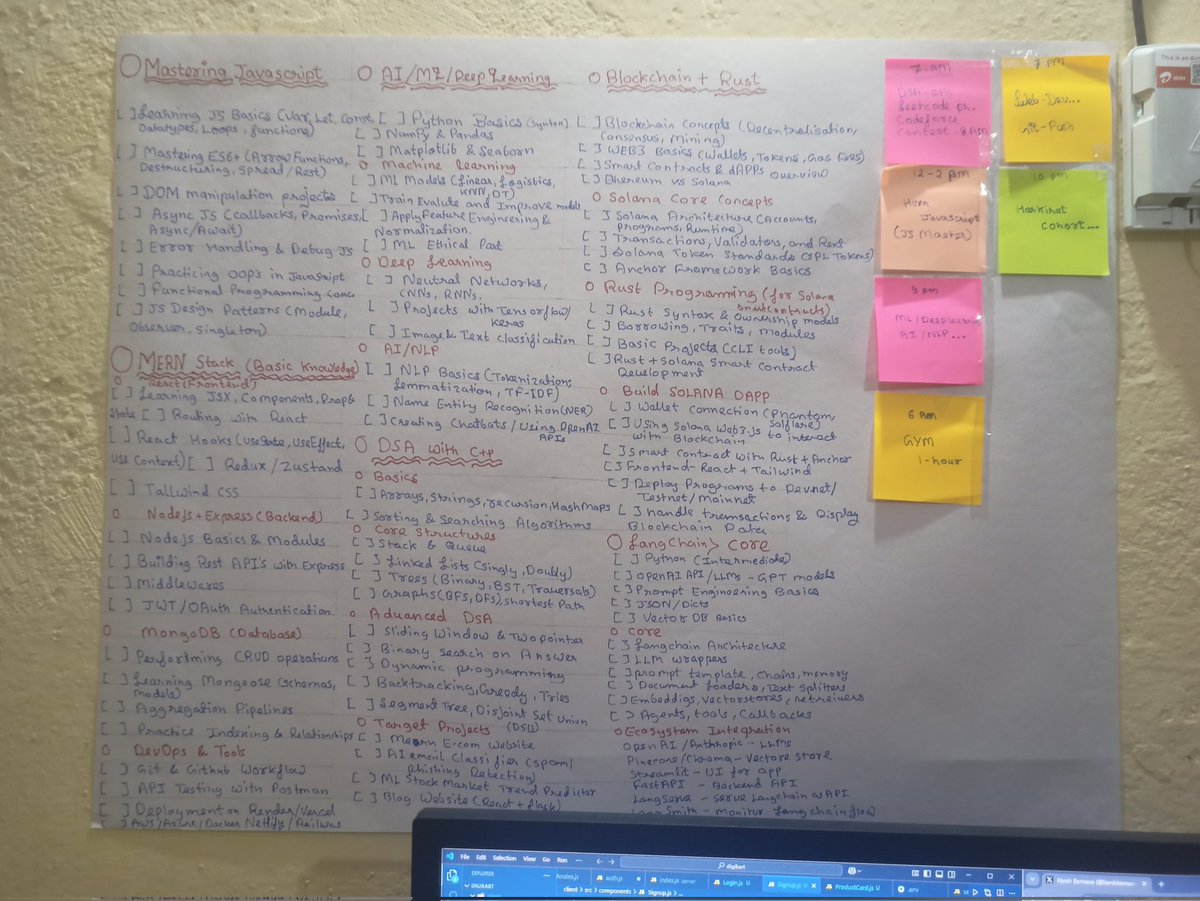 Mastering Javascript
[ ] Learning JS Basics (Var, Let, Const
Datatypes, Loops, functions)
[ ] Mastering ES6+ (Arrow Functions,
Destructuring, Spread/Rest)
[ ] DOM manipulation projects
[ ] Async JS (callbacks, Promises,
Async/Await)
[ ] Error Handling & Debug JS
[ ] Practicing OOP's in JavaScript
[ ] Functional Programming conce
[ ] JS Design Patterns (Module,
Observer, Singleton)
MERN Stack (Basic Knowledge)
React (Frontend)
[ ] Learning JSX, Components, Prop &
State [ ] Routing with React
[ ] React Hooks (UseState, UseEffect,
Use Context) [ ] Redux/Zustand
[ ] Tailwind CSS
Nodejs + Express (Backend)
[ ] Node.js Basics & Modules
[ ] Building Rest API's with Express
[ ] Middlewares
[ ] JWT/OAuth Authentication
MongoDB (Database)
[ ] Performing CRUD operations
[ ] Learning Mongoose (schemas,
models)
[ ] Aggregation Pipelines
[ ] Practice Indexing & Relationships
DevOps & Tools
[ ] Git & Github Workflow
[ ] API Testing with Postman
[ ] Deployment on Render/Vercel
[ ] Aws/Azure/Docker Netlify/Railway
AI/ML/Deep Learning
[ ] Python Basics (Syntax)
[ ] NumPy & Pandas
[ ] Matplotlib & Seaborn
Machine Learning
[ ] ML Models (Linear, Logistics,
KNN, DT)
[ ] Train Evalute and Improve models
[ ] Apply Feature Engineering &
Normalization.
[ ] ML Ethical Part
Deep Learning
[ ] Neutral Networks,
CNNs, RNNs.
[ ] Projects with Tensorflow/
Keras
[ ] Image & Text classification
AI/NLP
[ ] NLP Basics (Tokenization,
Lemmatization, TF-IDF)
[ ] Name Entity Recognition (NER)
[ ] Creating Chatbots/Using OpenAI
APIs
DSA with C++
Basics
[ ] Arrays, Strings, recursion, HashMaps
[ ] Sorting & Searching Algorithms
Core Structures
[ ] Stack & Queue
[ ] Linked Lists (Singly, Doubly)
[ ] Trees (Binary, BST, Traversals)
[ ] Graphs (BFS, DFS), Shortest Path
Advanced DSA
[ ] Sliding Window & Two pointer
[ ] Binary search on Answer
[ ] Dynamic programming
[ ] Backtracking, Greedy, Tries
[ ] Segment Tree, Disjoint Set Union
(DSU)
Target Projects
[ ] Mearn E-com Website
[ ] AI email Classifier (spam/
phishing Detection)
[ ] ML Stock Market Trend Predictor
[ ] Blog Website (React + flask)
Blockchain + Rust
[ ] Blockchain Concepts (Decentralisation,
consensus, Mining)
[ ] WEB3 Basics (Wallets, Tokens, Gas fees)
[ ] Smart Contracts & dAPPs overview
[ ] Ethereum vs Solana
Solana Core Concepts
[ ] Solana Architecture (Accounts,
programs, Runtime)
[ ] Transactions, Validators, and Rent
[ ] Solana Token Standards (SPL Tokens)
[ ] Anchor Framework Basics
Rust Programming (for Solana
smart contracts)
[ ] Rust Syntax & Ownership models
[ ] Borrowing, Traits, Modules
[ ] Basic Projects (CLI tools)
[ ] Rust + Solana Smart Contract
Development
Build SOLANA DAPP
[ ] Wallet connection (Phantom,
Solflare)
[ ] Using Solana Web3.js to interact
with Blockchain
[ ] Smart contract with Rust + Anchor
[ ] Frontend- React + Tailwind
[ ] Deploy Programs to Devnet/
Testnet/Mainnet
[ ] handle transactions & Display
Blockchain Data
LangChain> Core
[ ] Python (Intermediate)
[ ] OpenAI API/LLMs - GPT models
[ ] Prompt Engineering Basics
[ ] JSON/Dicts
[ ] Vector DB Basics
Core
[ ] Langchain Architecture
[ ] LLM wrappers
[ ] prompt template, Chains, memory
[ ] Document Loaders, Text Splitters
[ ] Embeddigs, Vectorstores, retrievers
[ ] Agents, tools, Callbacks
Ecosystem Integration
OpenAI/Anthropic - LLMs
Pinecone/Chroma - Vectore Store
Streamlit - UI for app
FastAPI - Backend API
LangServe - Serve Langchain as API
LangSmith - Monitor Langchain flow
7-AM
Leetcode pr..
Codeforce
Contest - 8AM
7 PM
Web-Dev...
Git-Push
12-2 PM
Javascript
(JS Master)
10 pm
Harkirat
Cohort...
5 pm
ML/Deeplearning
AI/NLP...
6 AM
GYM
1-hour
This is an Air
airtel
File Edit Selection View Go Run ...
digikart
EXPLORER
DIGIKART
Routes.js
auth.js
index.js server
Login.js U
Signup.js U
ProductCard.js U
.env
client > src > components > Signup.js > ...